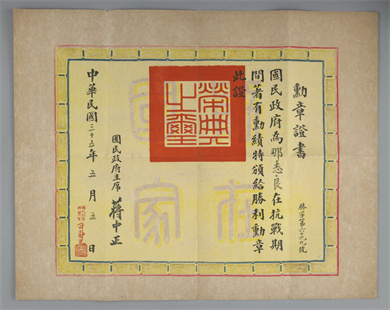 勳章證書
勝字第六〇九九號
國民政府為那志良在抗戰期
間著有勳績特頒給勝利勳章
此證
榮典之璽
國民政府主席
蔣中正
中華民國三十五年五月五日